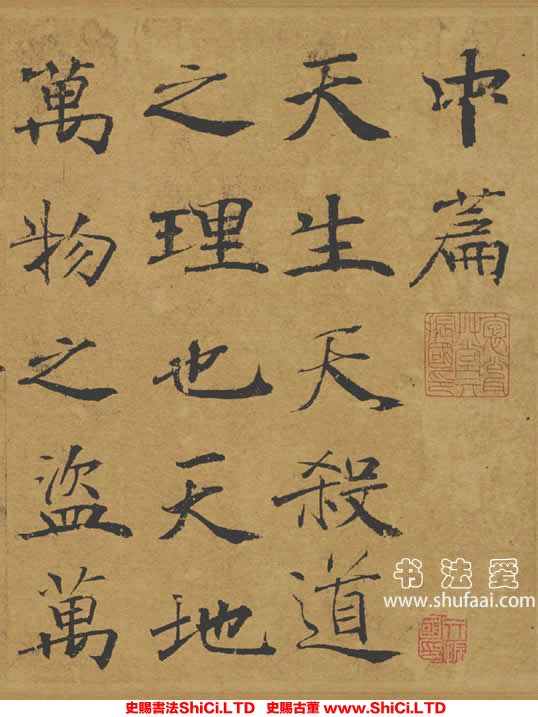 中篇
天生天殺道
之理也天地
萬物之盜萬
书法爱
www.shufaai.com
史賜書法ShiCi.LTD 史賜古董 www.ShiCi.LTD